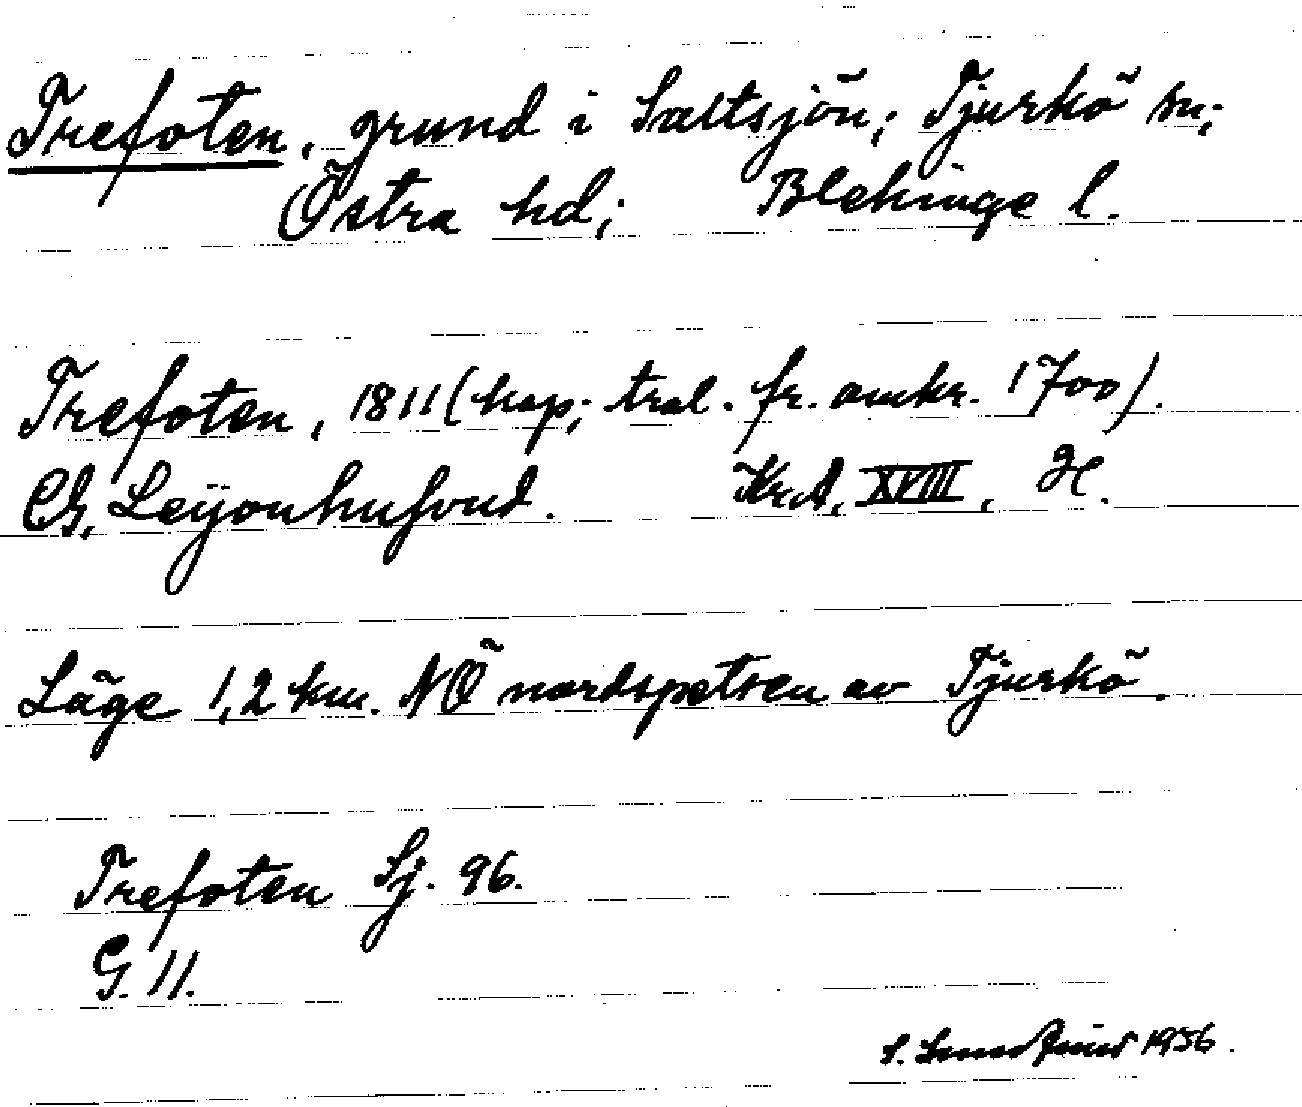 Trefoten, grund i Saltsjön; Tjurkö sn;
Östra hd; Blekinge l.
Trefoten, 1811 (kop; tral. fr. omkr. 1700).
Ch. Leijonhufvud. Kr.A. XVIII, H.
Läge 1,2 km. NÖ nordspetsen av Tjurkö.
Trefoten Sj. 96.
G. 11.
S. 1956.